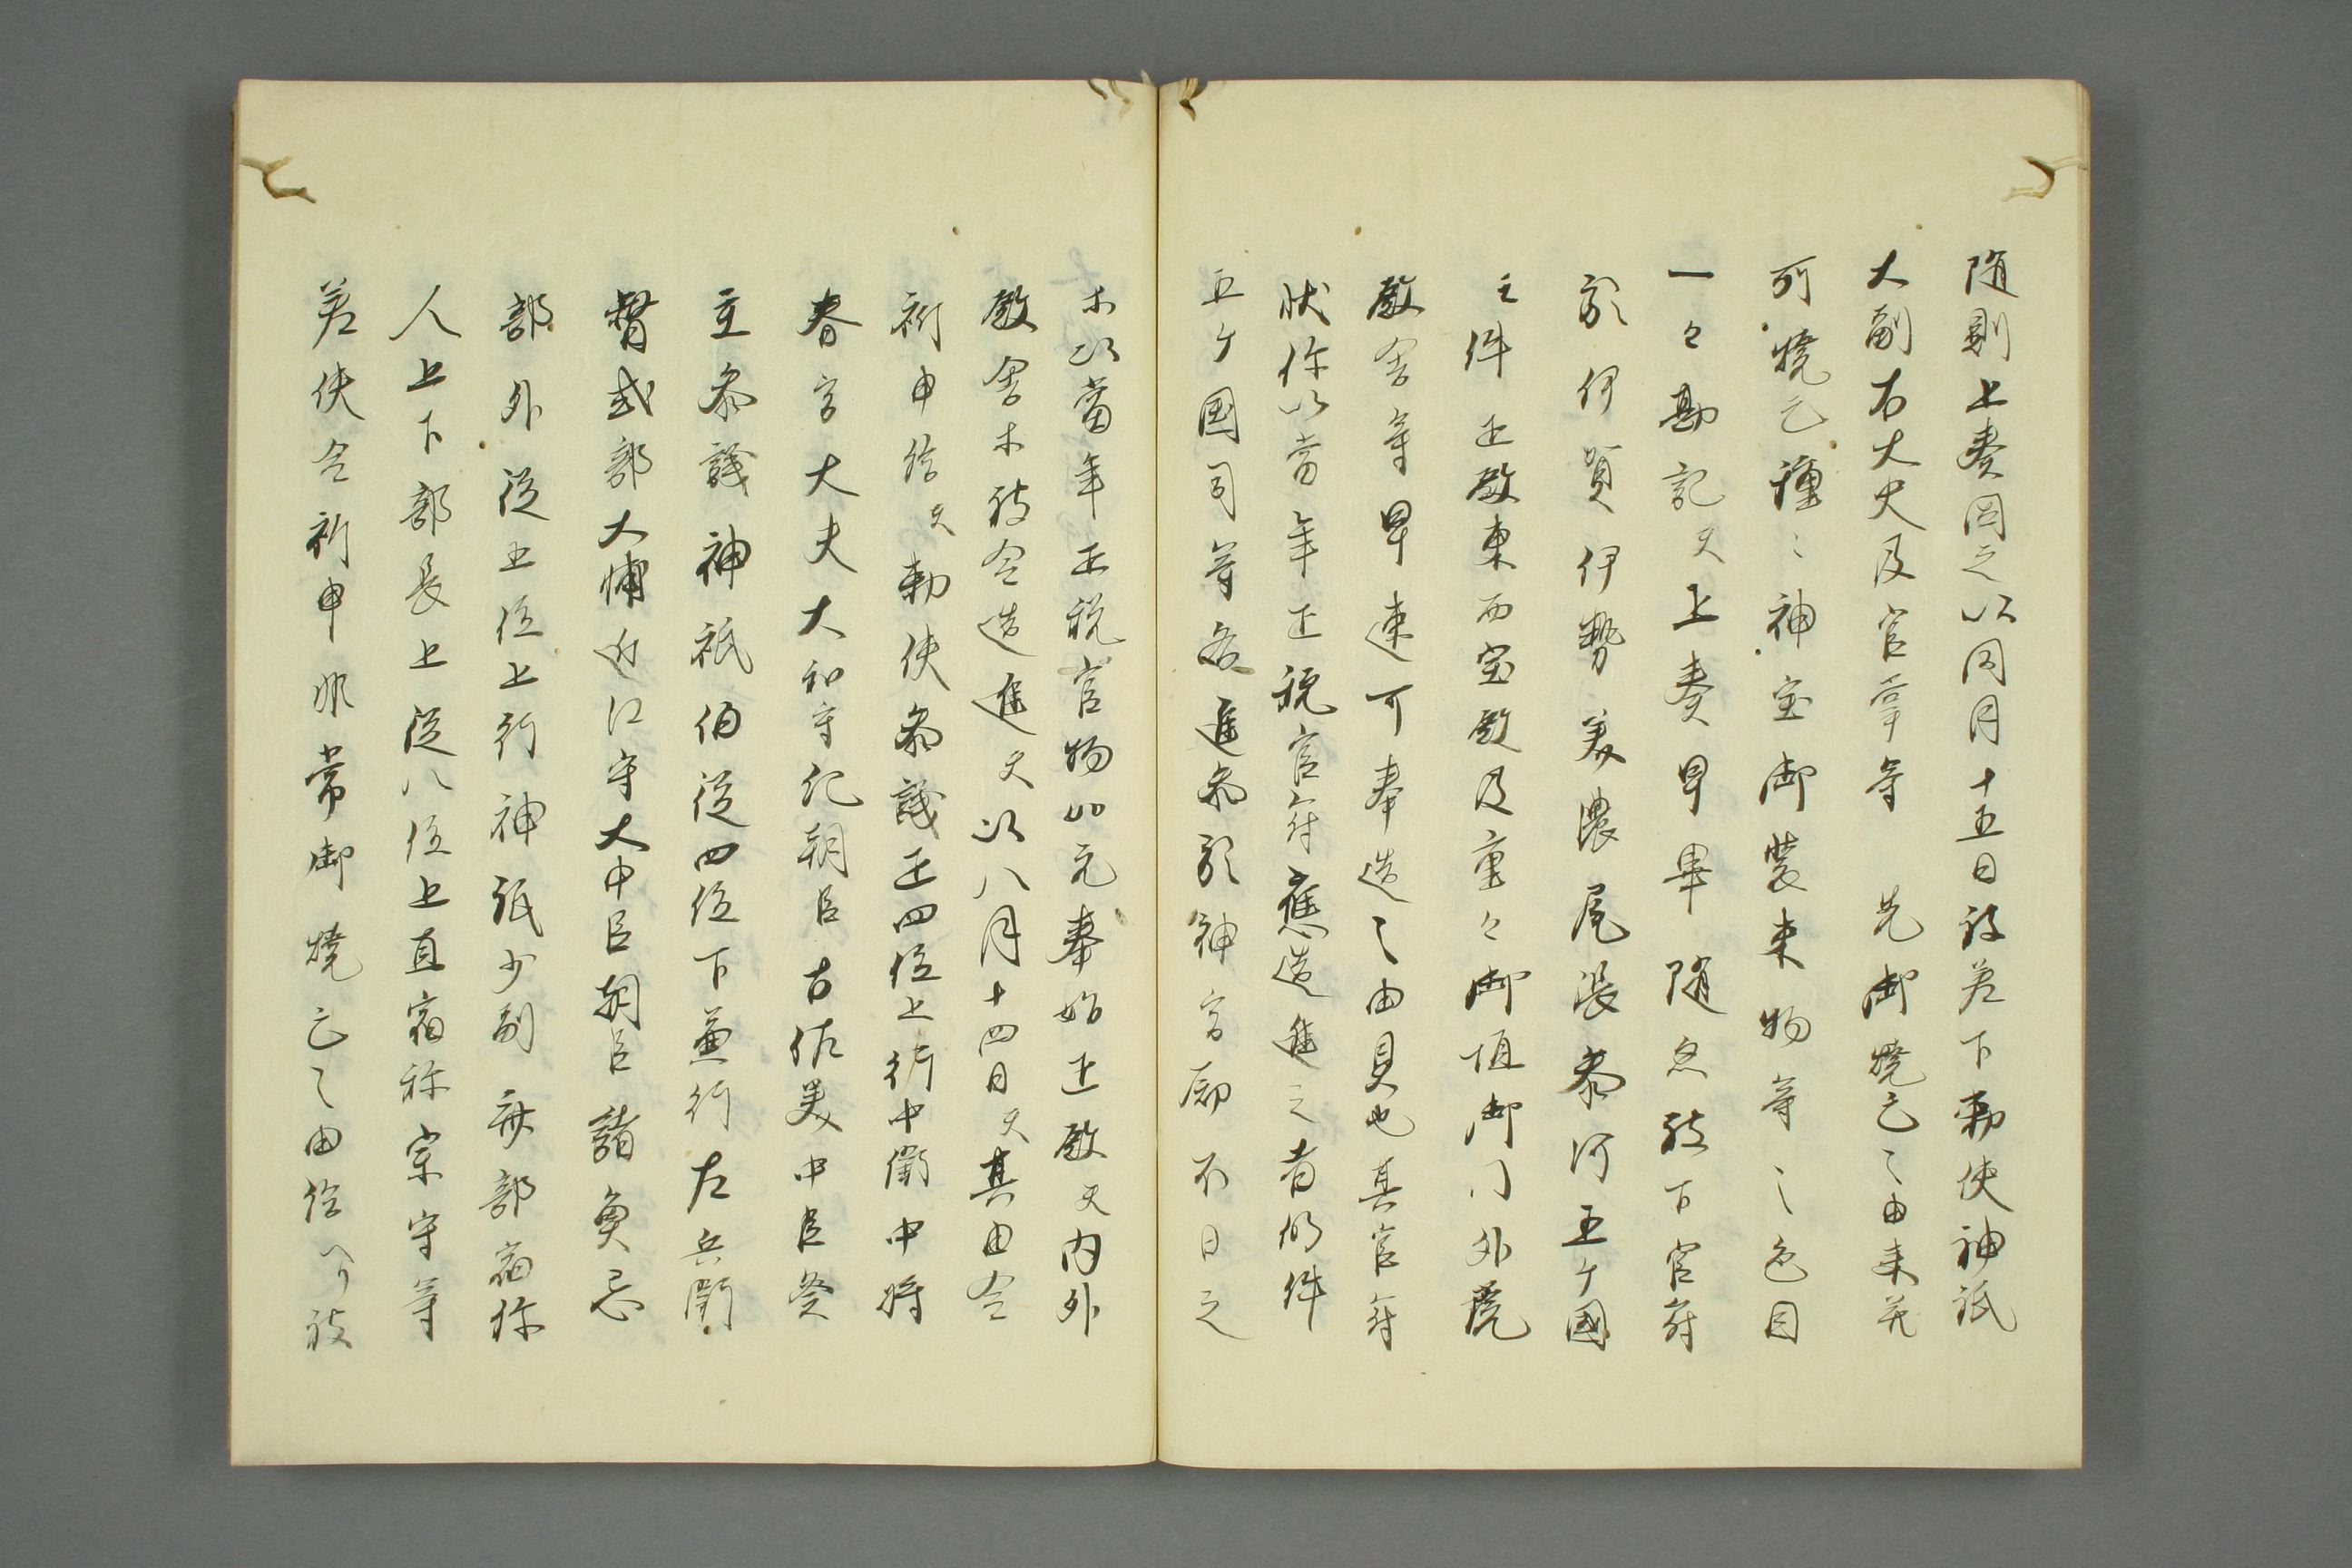 随則上奏因之以同月十五日被差下勅使神祇
大副右大史及官掌等　先御焼亡之由来并
所焼亡種々神宝御装束物等之色目
一々勘記天上奏早畢随忽被下官符
於伊賀伊勢美濃尾張参河五ケ國
之件正殿東西宝殿及重々御垣御門外院
殿舎等早速可奉造之由具也其官符
状偁以當年正税官府應造進之者仍件
五ケ國司等各進参於神宮厨不日之
木以當年正税官物如元奉始正殿天内外
殿舎木被令造進天以八月十四日天其由令
祈申給天勅使参議正四位上行中衛中将
春宮大夫大和守紀朝臣古佐美中臣祭
主参議神祇伯従四位下兼行左兵衛
督式部大輔近江守大中臣朝臣諸魚忌
部外従五位上行神祇少副斎部宿祢
人上下部長上従八位上直宿祢宗守等
差使令祈申非常御焼亡之由給ヘリ被